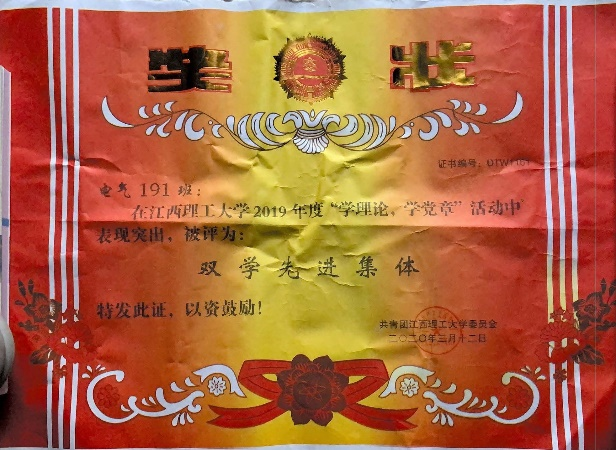 奖 状
证书编号：DTW1161
电气 191 班：
在江西理工大学2019年度“学理论，学党章”活动中
表现突出，被评为：
双学先进集体
特发此证，以资鼓励！
共青团江西理工大学委员会
二〇二〇年三月十二日